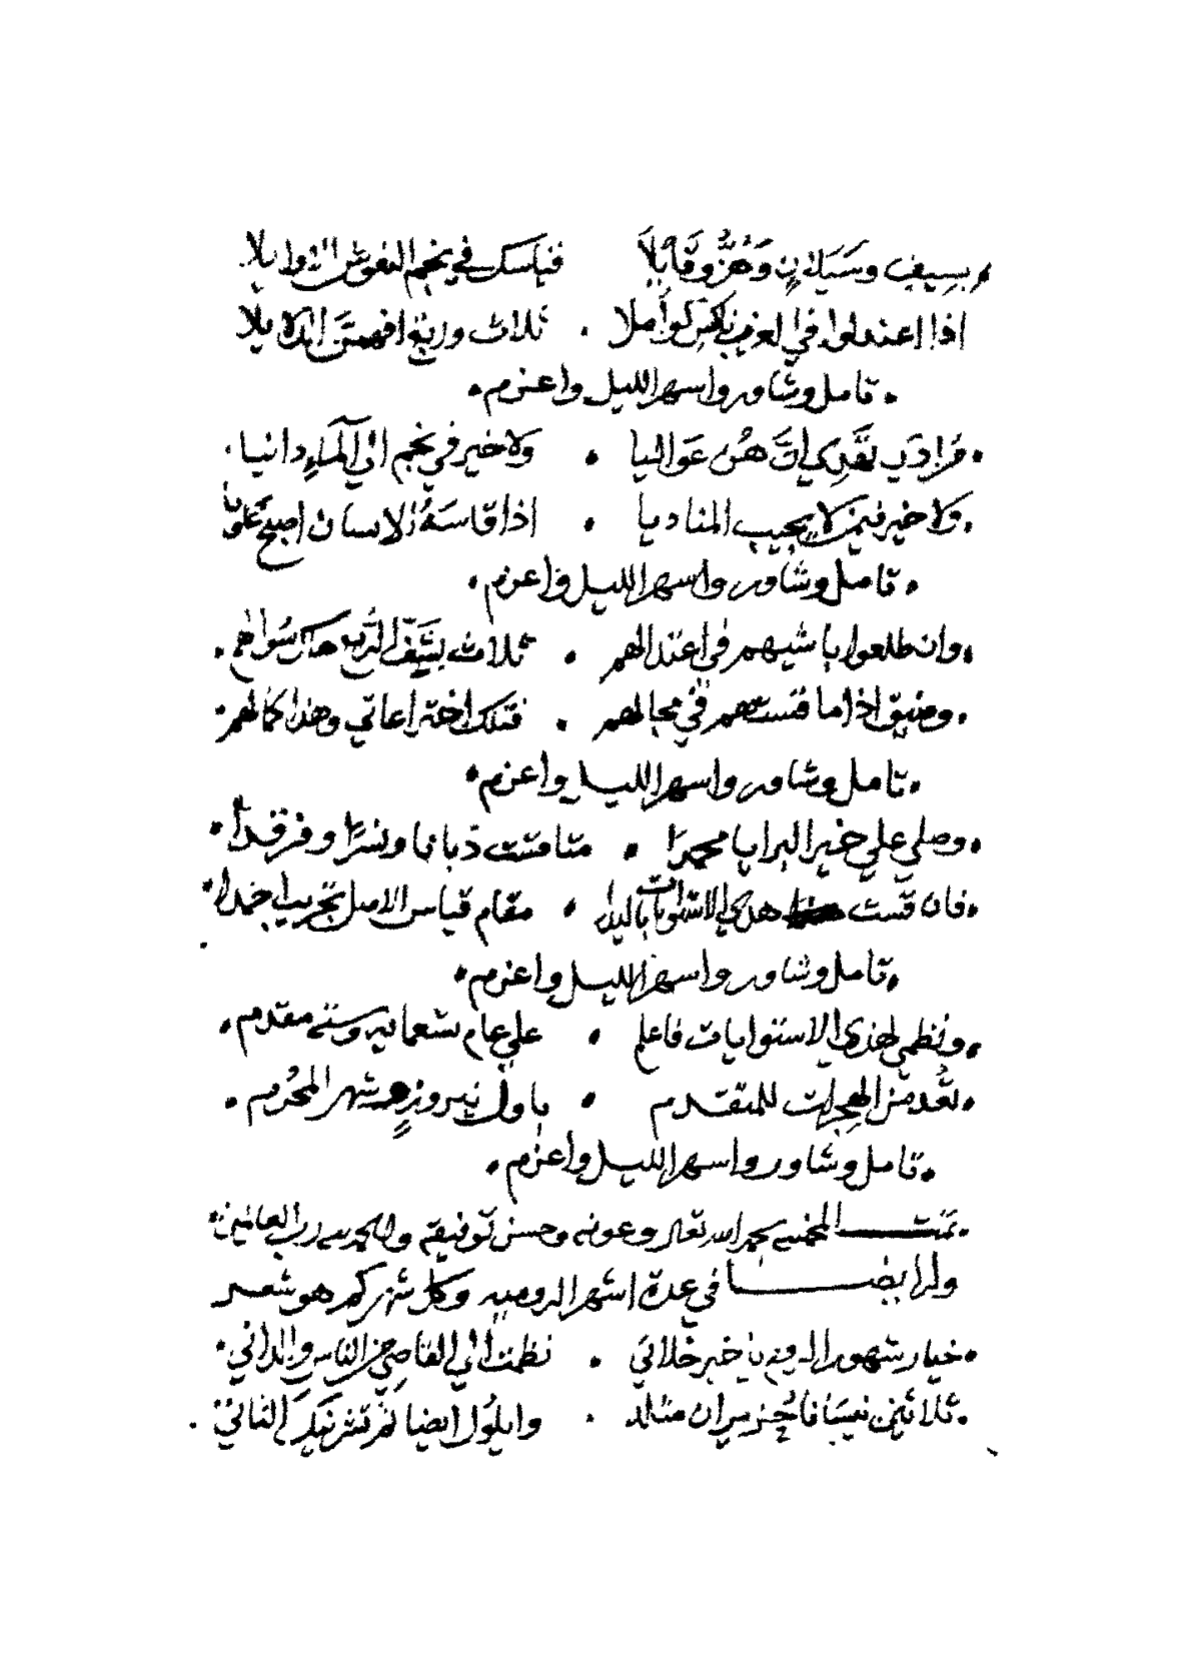 بسيف وسيلان وهزوقابلا فقياسك في نجم النعوش
اذا اعتدلوا في ثلاث وربع افهمن
تامل وشاور واسهر الليل واعزم
هن عواليا ولا خير في نجم الي الماء دانيا
ولا خير فيمن لا يجيب المناديا اذا قاسه الانسان اصبح
تامل وشاور واسهر الليل واعزم
وان طلعوا باشيهم في اعتدالهم ثلاث
وضيق اذا ما قستهم في مجالهم فتلك اختراعاتي وهذا كمالهم
تامل وشاور واسهر الليل واعزم
وصلي علي خير البرايا محمدا متا قست ذبانا ونسرا وفرقدا
فان قست هدي الاستوايات باليدا مقام قياس الاصل تجريب احمدا
تامل وشاور واسهر الليل واعزم
ونظمي لهذي الاستوايات فاعلم علي عام تسعمايه وستة مقدم
تعد من الهجرات للمتقدم باول نيروز شهر المحرم
تامل وشاور واسهر الليل واعزم
تمت المخمسه بحمد الله تعالي وعونه وحسن توفيقه والحمد لله رب العالمين
وله ايضا في عدة اشهر الروميه وكل شهر كم هو شعر
خيار شهور الروم يا خير خلاني نظمت الي القاصي من الناس والداني
ثلاثين نيسانا حزيران مثله وايلول ايضا ثم تشرينك الثاني